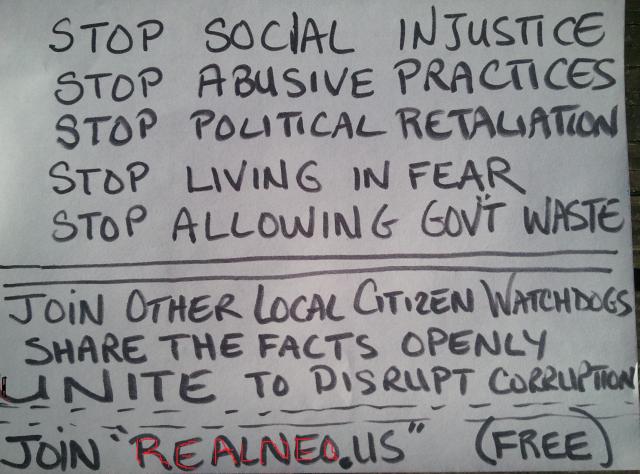 STOP SOCIAL INJUSTICE
STOP ABUSIVE PRACTICES
STOP POLITICAL RETALIATION
STOP LIVING IN FEAR
STOP ALLOWING GOV'T WASTE
JOIN OTHER LOCAL CITIZEN WATCHDOGS
SHARE THE FACTS OPENLY
UNITE TO DISRUPT CORRUPTION
JOIN "REALNEO.US" (FREE)